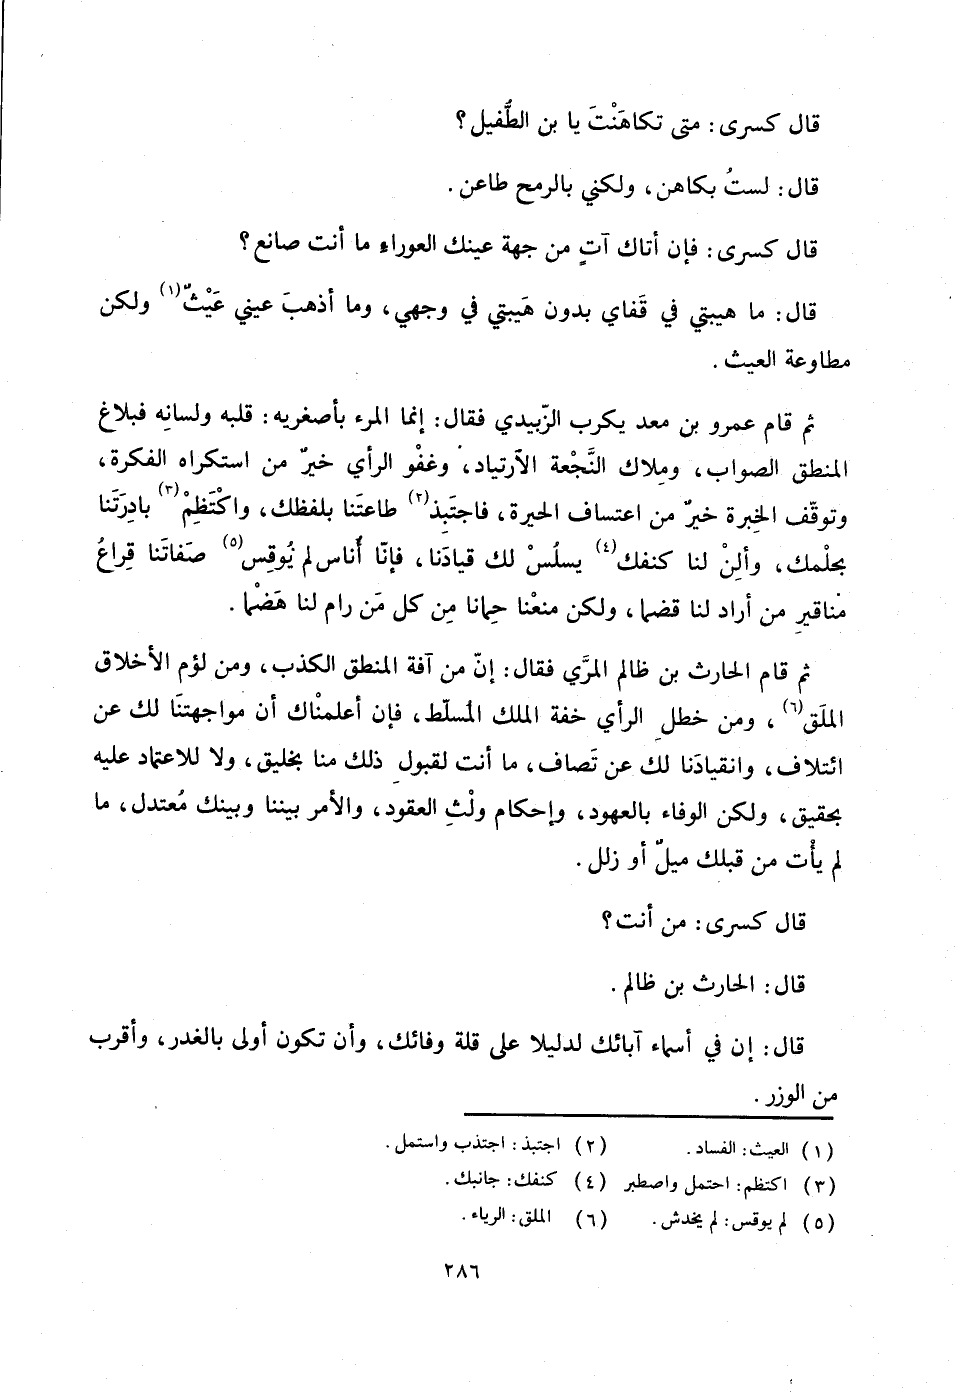 قال كسرى : متى تكاهَنْتَ يا بن الطُّفيل ؟
قال : لستُ بكاهن ، ولكني بالرمح طاعن .
قال كسرى : فإن أتاك آتٍ من جهة عينك العوراء ما أنت صانع ؟
قال : ما هيبتي في قَفاي بدون هَيبتي في وجهي ، وما أذهبَ عيني عَيْثٌ (١) ولكن
مطاوعة العيث .
ثم قام عمرو بن معد يكرب الزّبيدي فقال : إنما المرء بأصغريه : قلبه ولسانِه فبلاغ
المنطق الصواب ، ومِلاك النَّجْعة الآرتياد ، وعَفْو الرأي خيرٌ من استكراه الفكرة ،
وتوقّف الخِبرة خيرٌ من اعتساف الحيرة ، فاجتَبِذ (٢) طاعتَنا بلفظك ، واكْتَظِمْ (٣) بادِرَتَنا
بحلْمك ، وألِنْ لنا كنفك (٤) يسلُسْ لك قيادَنا ، فإنّا أُناس لم يُوقِس (٥) صَفاتَنا قِراعُ
مناقيرِ من أراد لنا قضما ، ولكن منعْنا حِمانا مِن كل مَن رام لنا هَضْما .
ثم قام الحارث بن ظالم المرَّي فقال : إنّ من آفة المنطق الكذب ، ومن لؤم الأخلاق
الملَق (٦) ، ومن خطلِ الرأي خفة الملك المُسلّط ، فإن أعلمناك أن مواجهتنَا لك عن
ائتلاف ، وانقيادَنا لك عن تَصاف ، ما أنت لقبولِ ذلك منا بخليق ، ولا للاعتماد عليه
بحقيق ، ولكن الوفاء بالعهود ، وإحكام ولْثِ العقود ، والأمر بيننا وبينك مُعتدل ، ما
لم يأْت من قبلك ميلٌ أو زلل .
قال كسرى : من أنت ؟
قال : الحارث بن ظالم .
قال : إن في أسماء آبائك لدليلا على قلة وفائك ، وأن تكون أولى بالغدر ، وأقرب
من الوزر .
(١) العيث : الفساد . (٢) اجتبذ : اجتذب واستمل .
(٣) اكتظم : احتمل واصطبر (٤) كنفك : جانبك .
(٥) لم يوقس : لم يخدش . (٦) الملق : الرياء .
٢٨٦